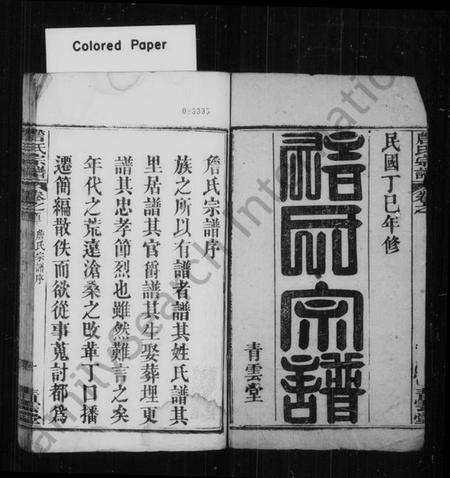 Colored Paper
民國丁巳年修
詹氏宗譜
青雲堂
詹氏宗譜序
族之所以有譜者譜其姓氏譜其
里居譜其官爵譜其生娶葬埋更
譜其忠孝節烈也雖然難言之矣
年代之荒遠滄桑之改革丁口播
遷簡編散佚而欲從事蒐討都為
詹氏宗譜
卷之首
詹氏宗譜序
FamilySearch International